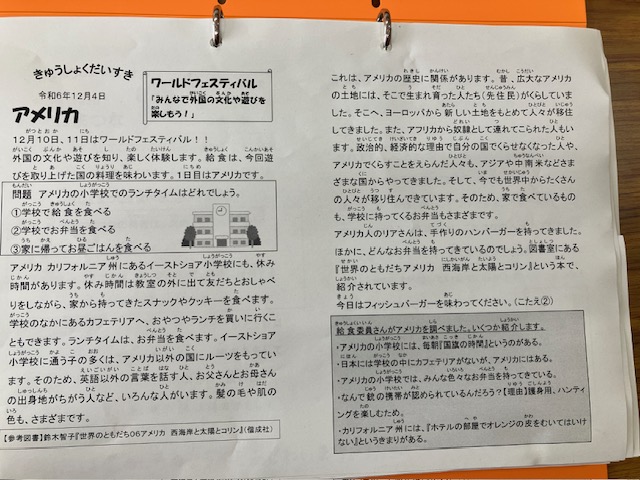 きゅうしょくだいすき
令和6年12月4日
ワールドフェスティバル
「みんなで外国の文化や遊びを
楽しもう！」
アメリカ
12月10日、11日はワールドフェスティバル！！
外国の文化や遊びを知り、楽しく体験します。給食は、今回遊
びを取り上げた国の料理を味わいます。1日目はアメリカです。
問題 アメリカの小学校でのランチタイムはどれでしょう。
①学校で給食を食べる
②学校でお弁当を食べる
③家に帰ってお昼ごはんを食べる
アメリカ カリフォルニア州にあるイーストショア小学校にも、休み
時間があります。休み時間は教室の外に出て友だちとおしゃべ
りをしながら、家から持ってきたスナックやクッキーを食べます。
学校のなかにあるカフェテリアへ、おやつやランチを買いに行くこ
ともできます。ランチタイムは、お弁当を食べます。イーストショア
小学校に通う子の多くは、アメリカ以外の国にルーツをもってい
ます。そのため、英語以外の言葉を話す人、お父さんとお母さん
の出身地がちがう人など、いろんな人がいます。髪の毛や肌の
色も、さまざまです。
【参考図書】鈴木智子『世界のともだち06アメリカ 西海岸と太陽とコリン』（偕成社）
これは、アメリカの歴史に関係があります。昔、広大なアメリカ
の土地には、そこで生まれ育った人たち（先住民）がくらしていま
した。そこへ、ヨーロッパから新しい土地をもとめて人々が移住
してきました。また、アフリカから奴隷として連れてこられた人もい
ます。政治的、経済的な理由で自分の国でくらせなくなった人や、
アメリカでくらすことをえらんだ人々も、アジアや中南米などさま
ざまな国からやってきました。そして、今でも世界中からたくさん
の人々が移り住んできています。そのため、家で食べているもの
も、学校に持ってくるお弁当もさまざまです。
アメリカ人のリアさんは、手作りのハンバーガーを持ってきました。
ほかに、どんなお弁当を持ってきているのでしょう。図書室にある
『世界のともだちアメリカ 西海岸と太陽とコリン』という本で、
紹介されています。
今日はフィッシュバーガーを味わってください。（こたえ②）
給食委員さんがアメリカを調べました。いくつか紹介します。
・アメリカの小学校には、毎朝「国旗の時間」というのがある。
・日本には学校の中にカフェテリアがないが、アメリカにはある。
・アメリカの小学校では、みんな色々なお弁当を持ってきている。
・なんで銃の携帯が認められているんだろう？【理由】護身用、ハンティ
ングを楽しむため。
・カリフォルニア州には、『ホテルの部屋でオレンジの皮をむいてはいけ
ない』というきまりがある。